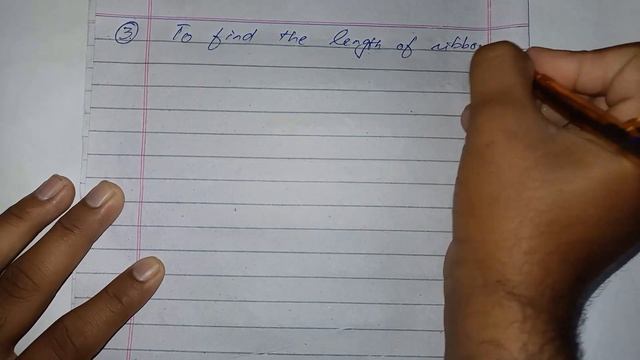 ③ To find the length of ribbon